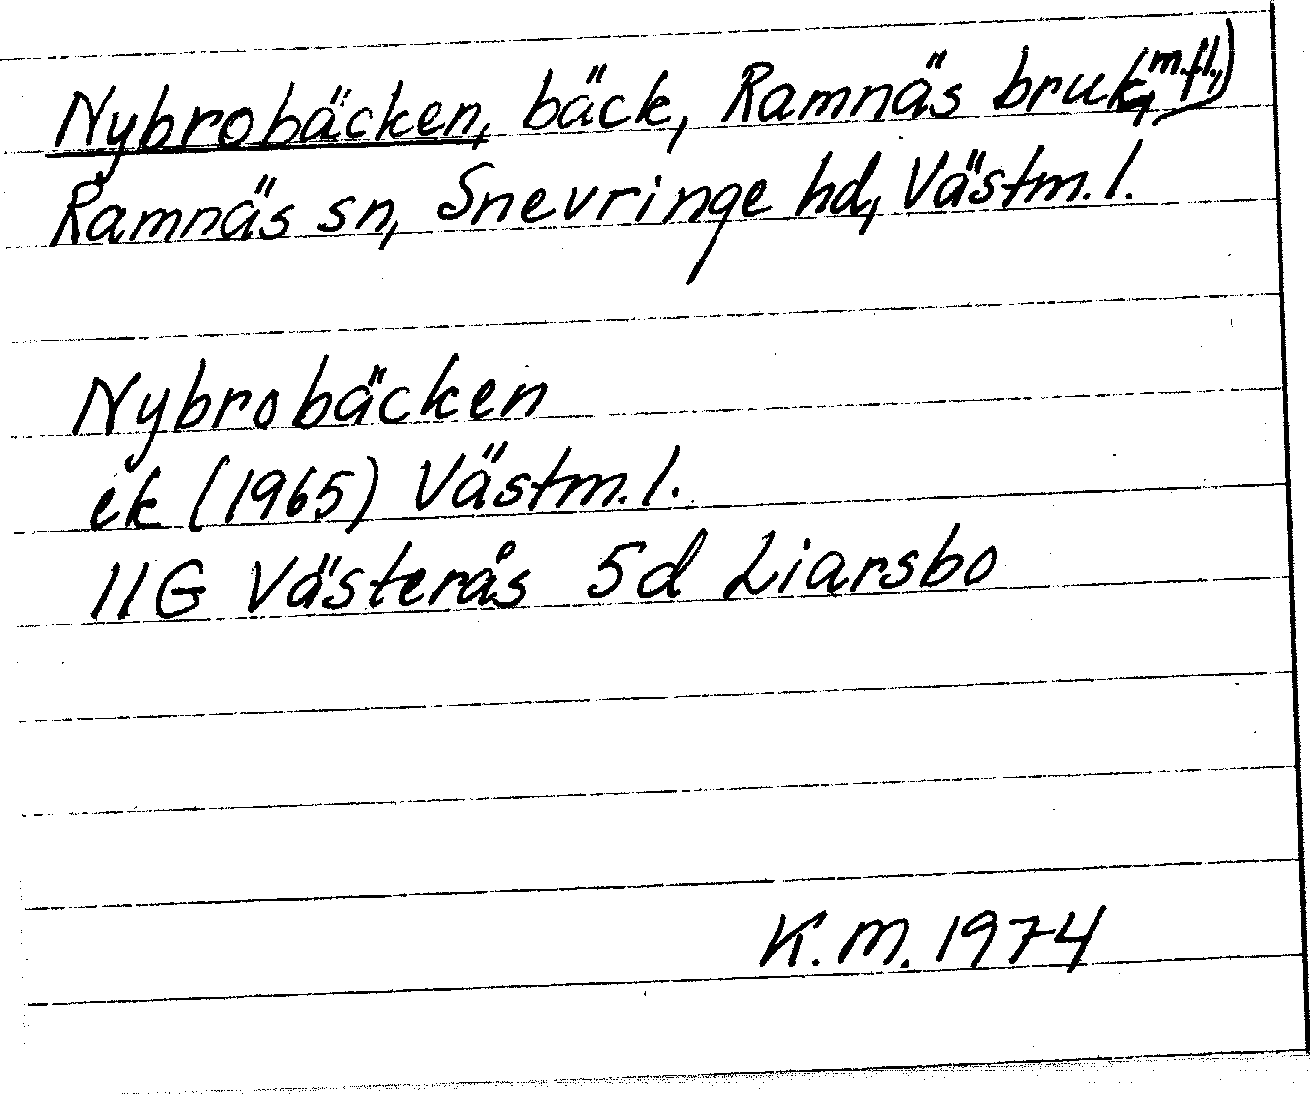 Nybrobäcken, bäck, Ramnäs bruk, m.fl.,
Ramnäs sn, Snevringe hd, Västm. l.
Nybrobäcken
ek (1965) Västm. l.
11G Västerås 5d Liarsbo
K.M. 1974